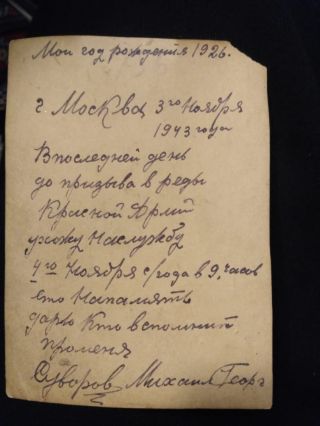 Мой год рождения 1926.
г Москва 3го Ноября
1943 года
Впоследней день
до призыва в реды
Красной Армий
ухожу Наслужбу
4го Ноября с/года в 9. часов
ето Напамять
дарю Кто вспомнит
променя
Суворов Михаил Георг